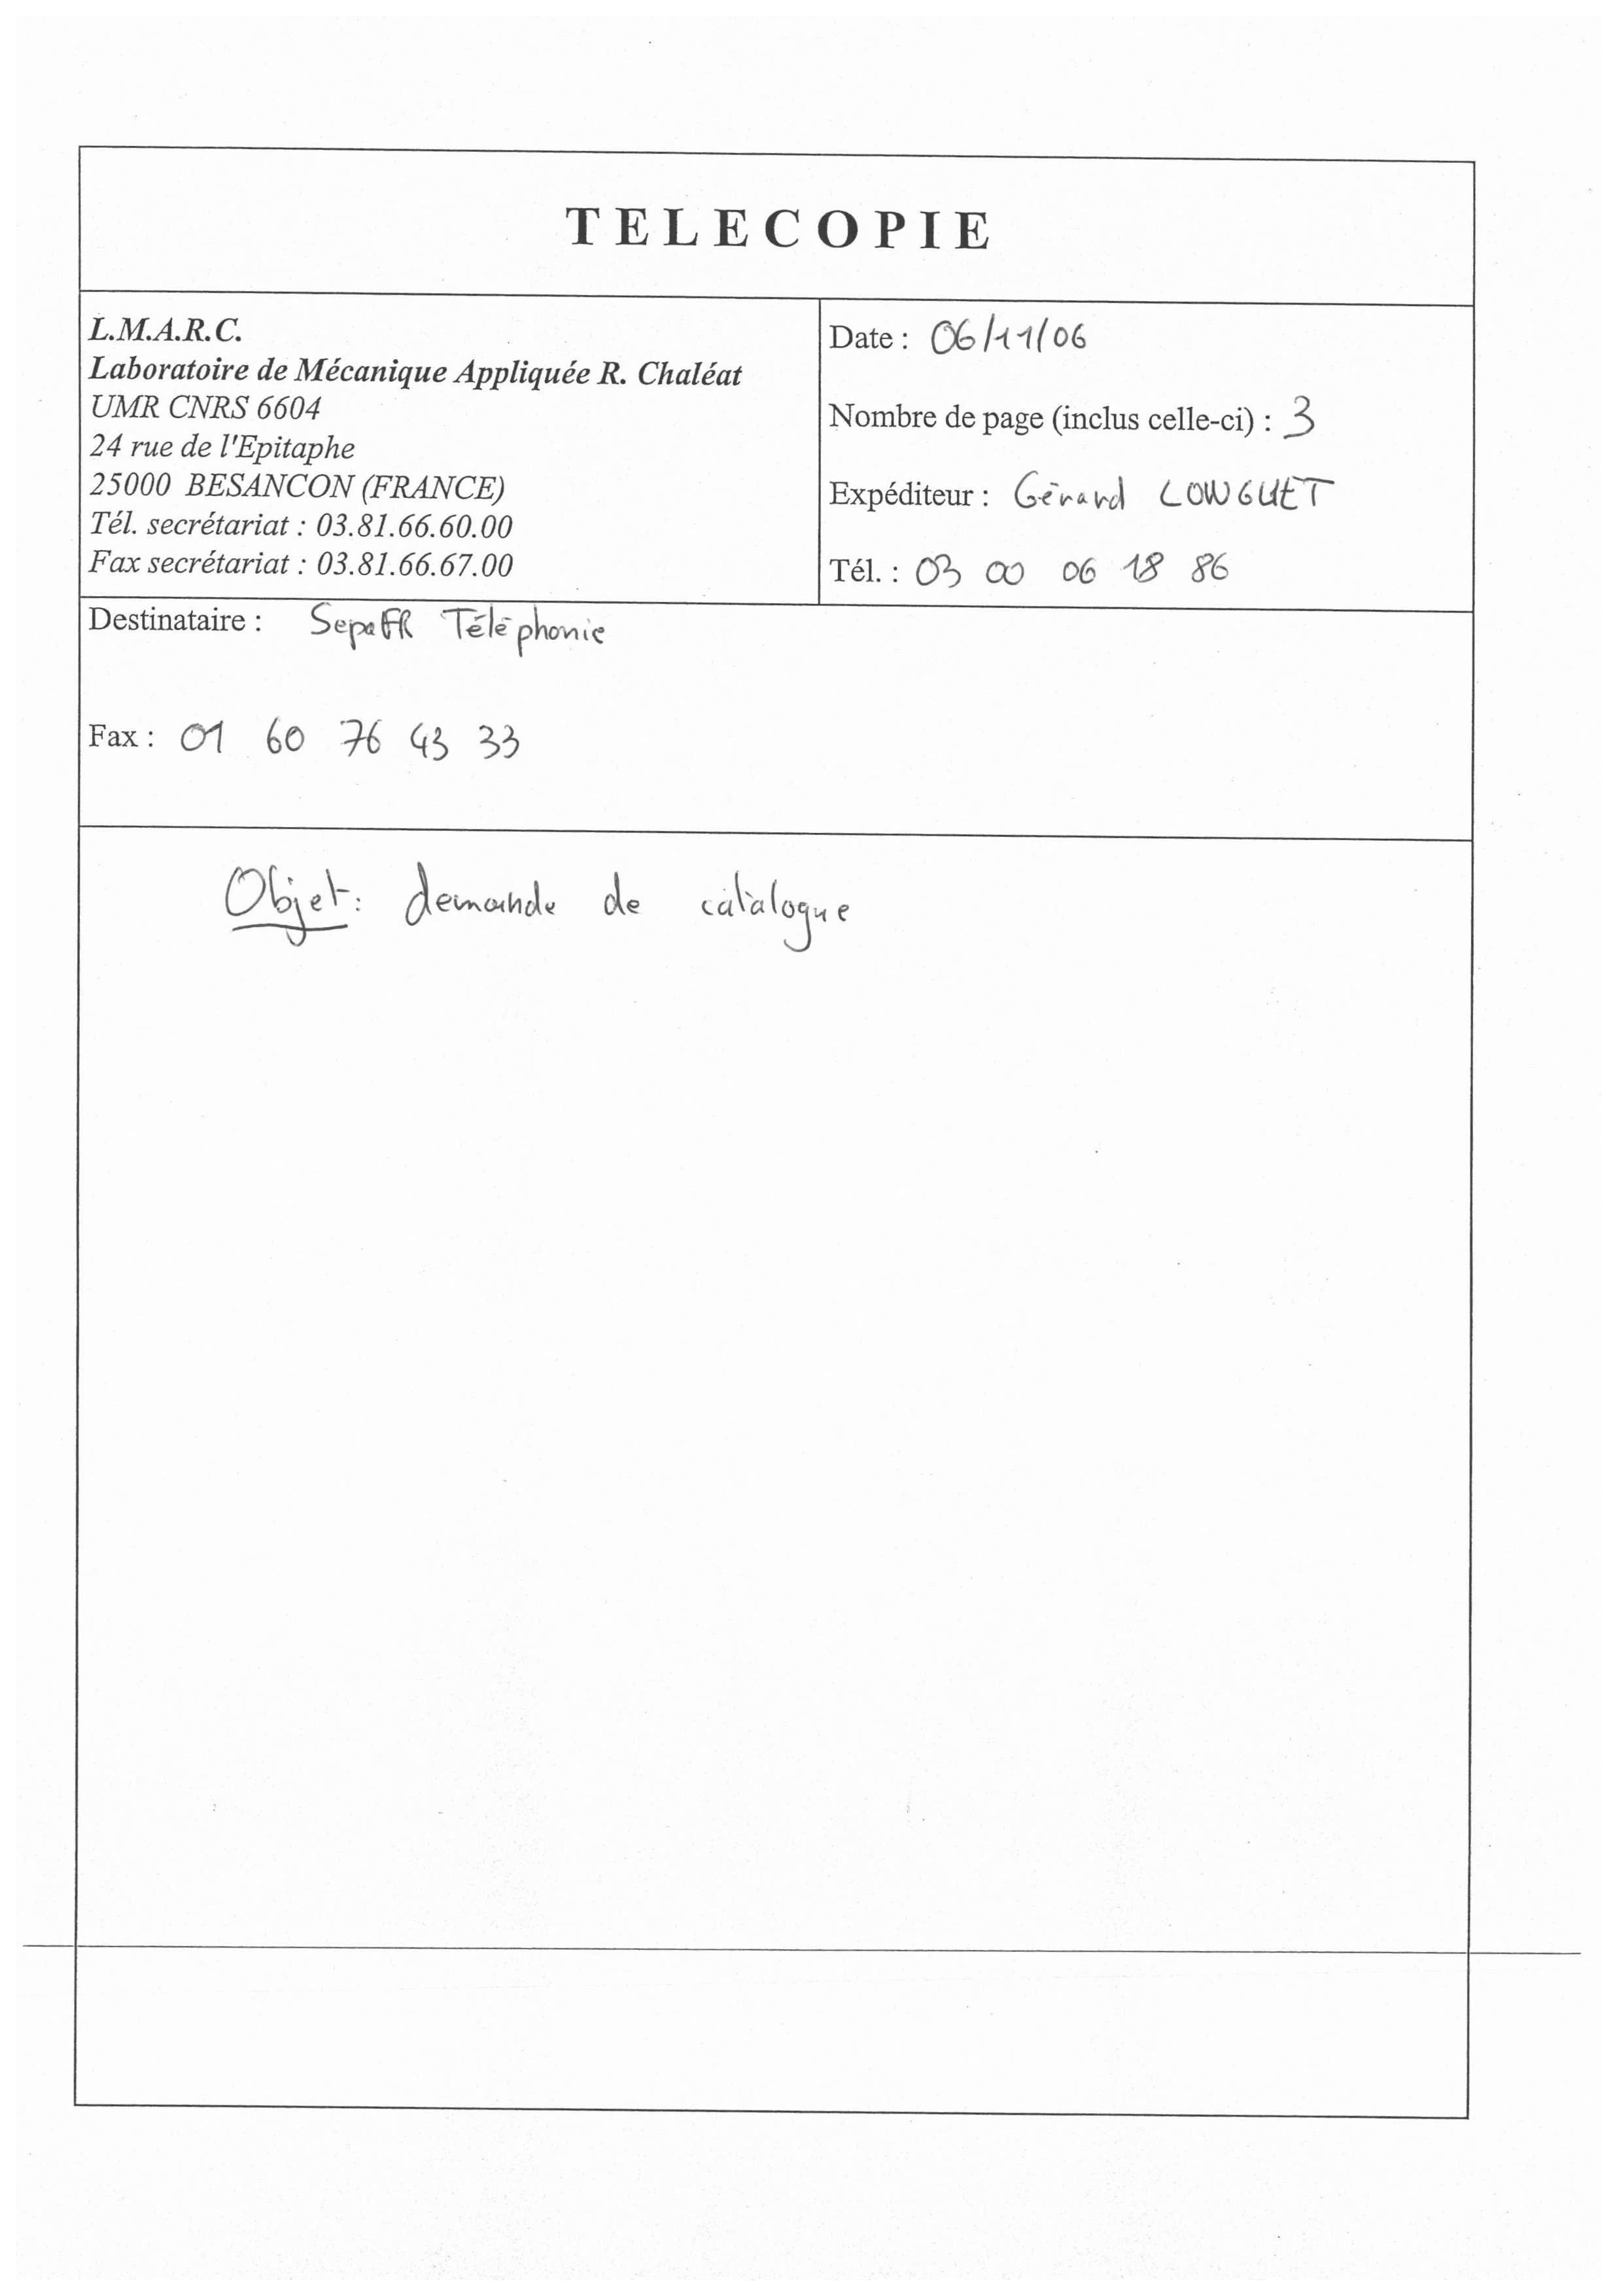 TELECOPIE
L.M.A.R.C.
Laboratoire de Mécanique Appliquée R. Chaléat
UMR CNRS 6604
24 rue de l'Epitaphe
25000 BESANCON (FRANCE)
Tél. secrétariat : 03.81.66.60.00
Fax secrétariat : 03.81.66.67.00
Date : 06/11/06
Nombre de page (inclus celle-ci) : 3
Expéditeur : Gérard LONGUET
Tél. : 03 00 06 18 86
Destinataire : SepaFR Téléphonie
Fax : 01 60 76 43 33
Objet : demande de catalogue